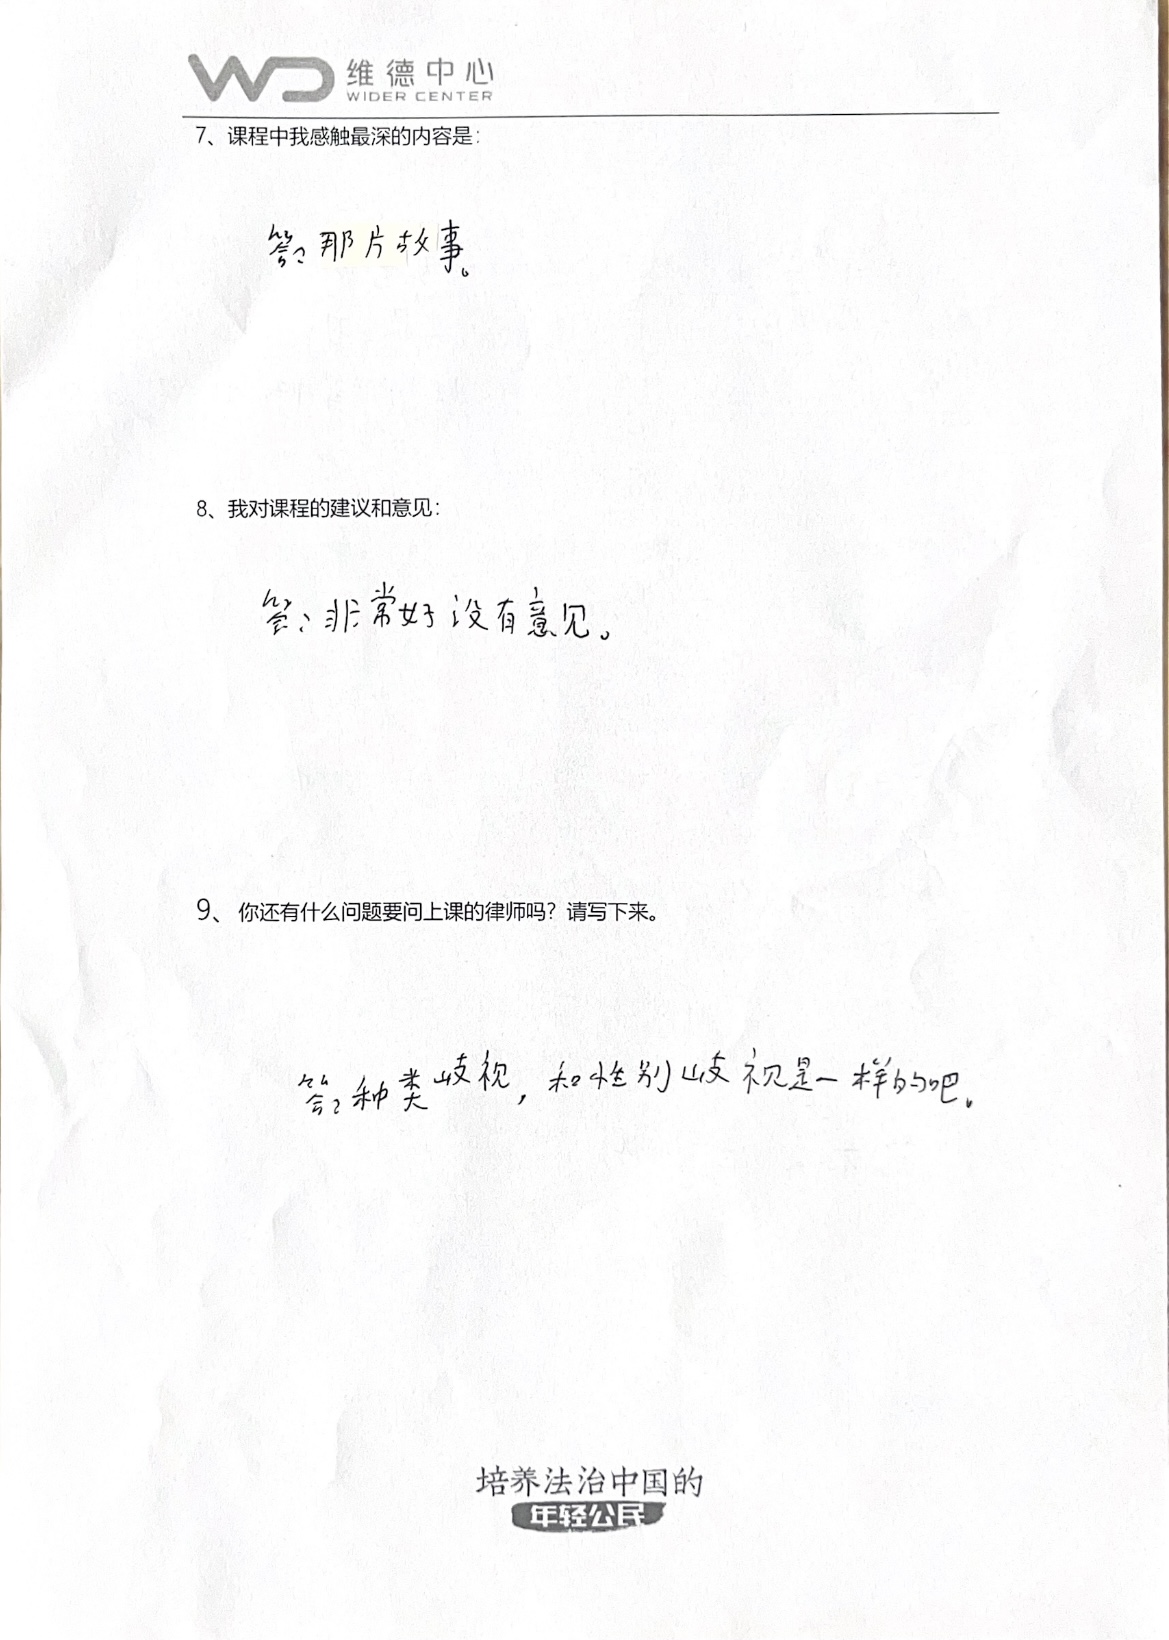 WD 维德中心
WIDER CENTER
7、课程中我感触最深的内容是:
答:那片故事。
8、我对课程的建议和意见:
答:非常好没有意见。
9、你还有什么问题要问上课的律师吗?请写下来。
答:种类歧视,和性别歧视是一样的吧。
培养法治中国的
年轻公民